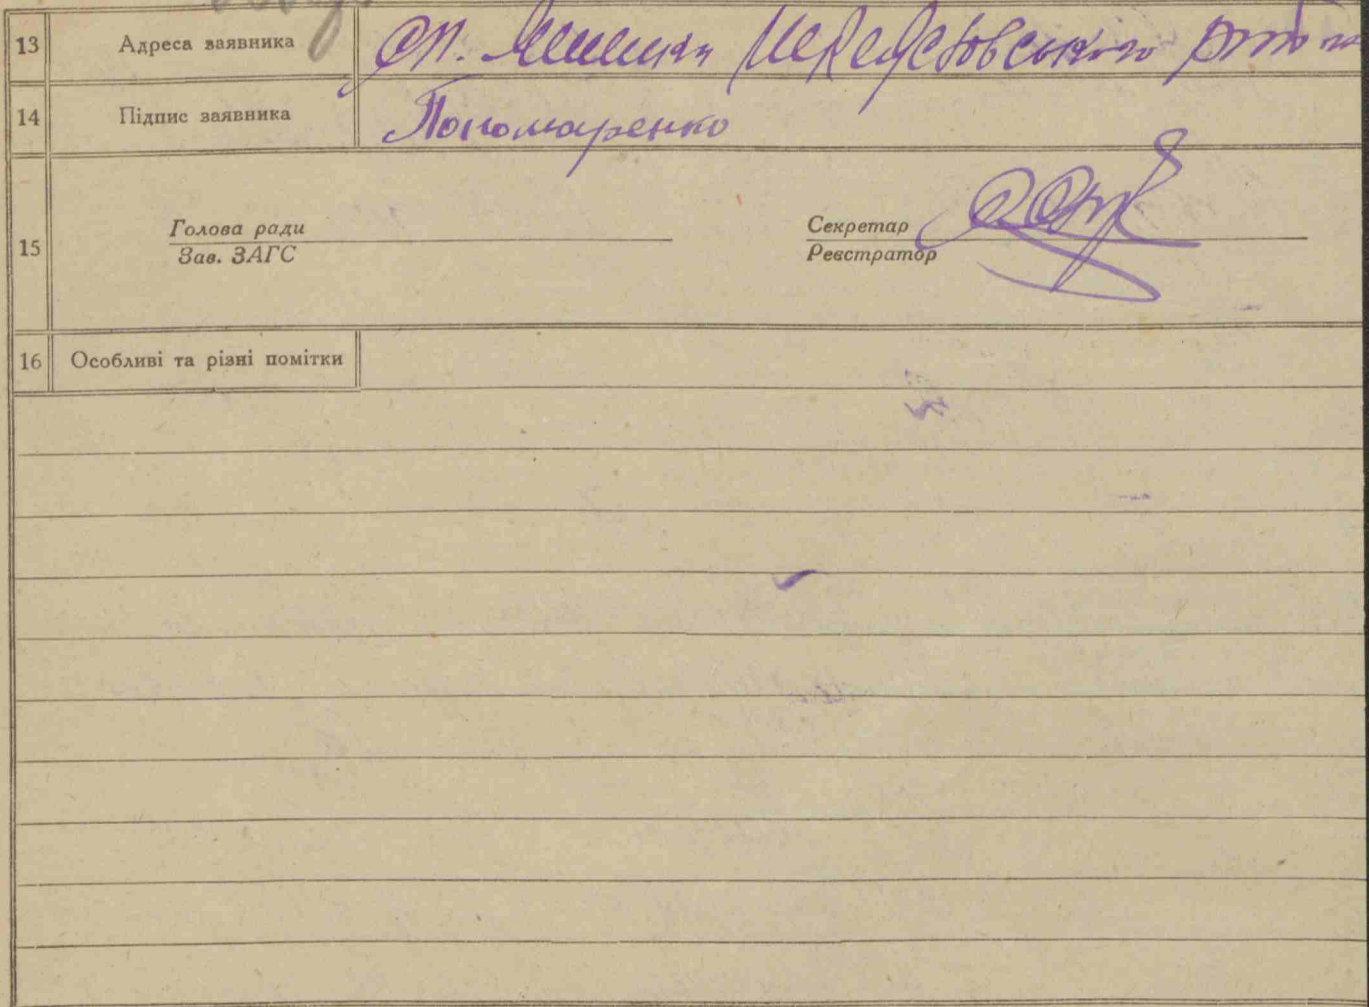 13 Адреса заявника ст.
14 Підпис заявника Пономаренко
15
Голова ради
Зав. ЗАГС
Секретар
Реєстратор
16 Особливі та різні помітки